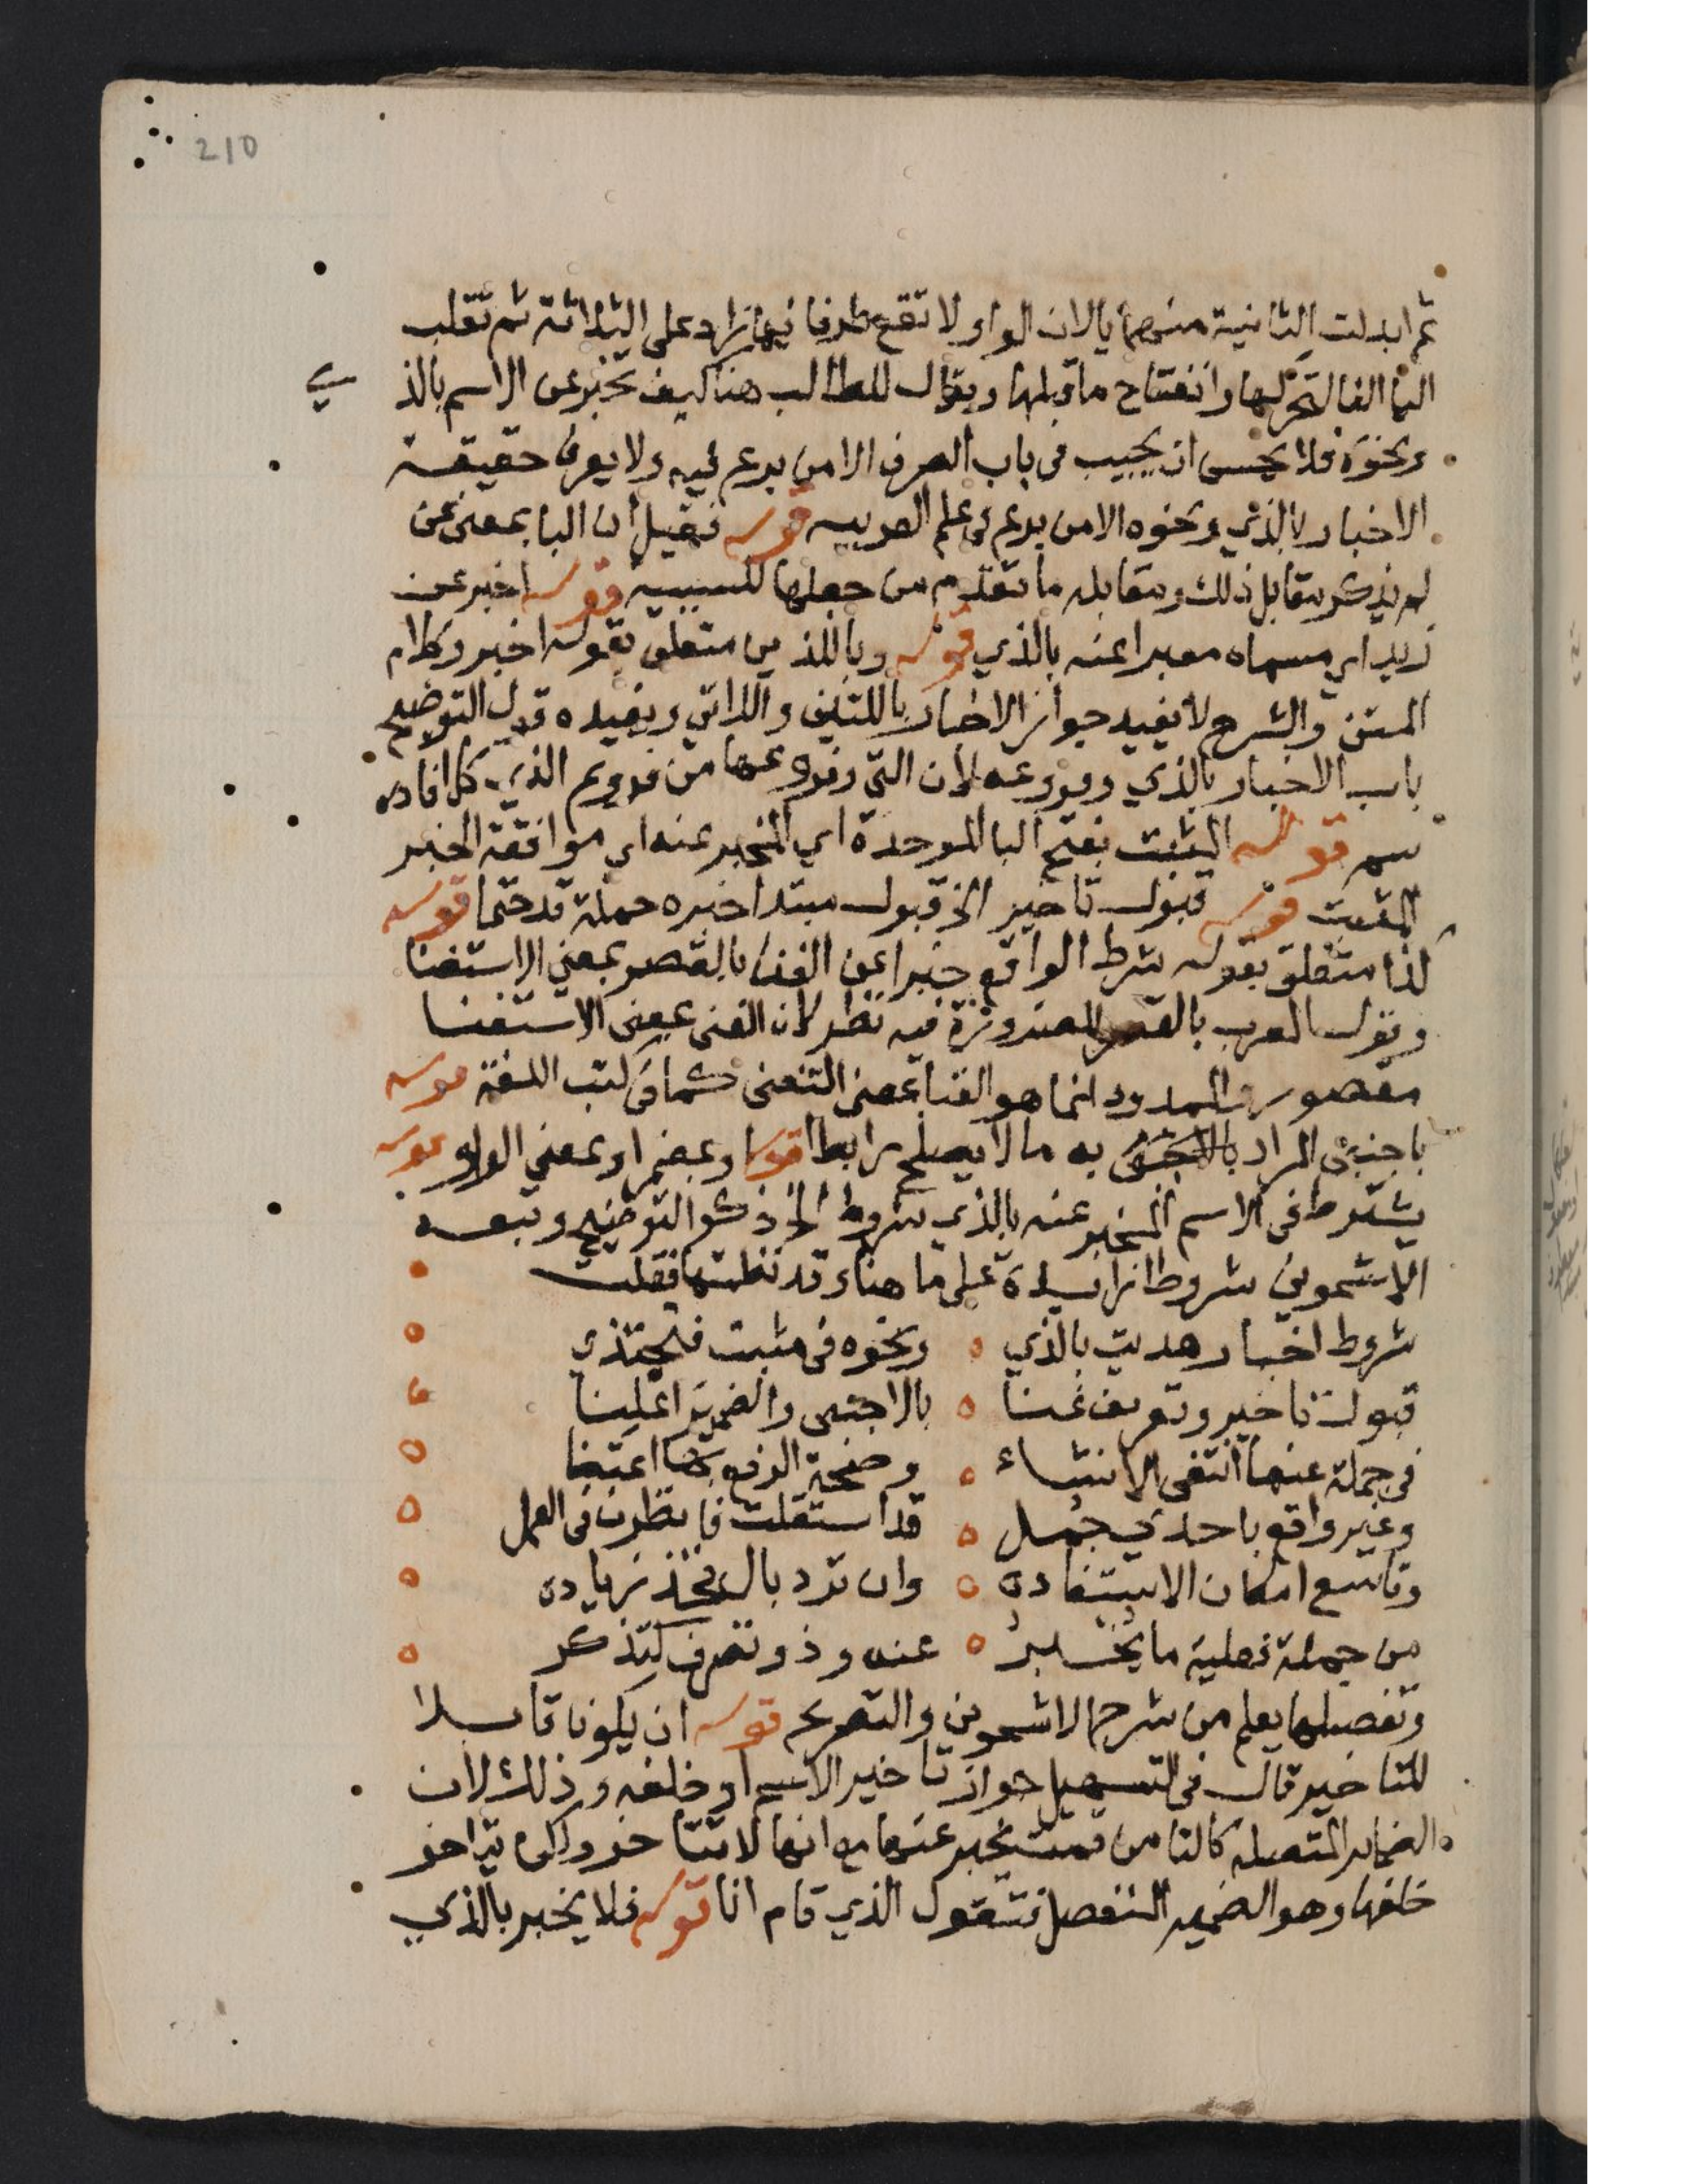 210
ثم ابدلت الثانية منهما يا لان الواو لا تقع طرفا فيما زاد على الثلاثة ثم تقلب
اليا الفا لتحركها وانفتاح ما قبلها ويقال للطالب هنا كيف تخبر عن الاسم بالذ
ي
ونحوه فلا يحسن ان يجيب في باب الصرف الا من برع فيه ولا يعرف حقيقة
الاخبار بالذي ونحوه الا من برع في علم العربيه قوله فقيل ان البا بمعنى عن
لم يذكر مقابل ذلك ومقابله ما تقدم من جعلها للسببيه قوله اخبر عن
زيد اي مسماه معبرا عنه بالذي قوله وباللذين متعلق بقوله اخبر وكلام
المتن والشرح لا يفيد جواز الاخبار باللتين واللاتي ويفيده قول التوضيح
باب الاخبار بالذي وفروعه لان التي وفروعها من فروع الذي كما افاده
سم قوله المثبت بفتح البا الموحدة اي المخبر عنه اي موافقة الخبر
المثبت قوله قبول تاخير الخ قبول مبتدا خبره جملة قد حتما قوله
كذا متعلق بقوله شرط الواقع خبرا عن الغنا بالقصر بمعنى الاستغنا
وقول المعرب بالقصر للضرورة فيه نظر لان الغنى بمعنى الاستغنا
مقصور والممدود انما هو الغنا بمعنى التغنى كما في كتب اللغة قوله
باجنبي المراد بالاجنبي به ما لا يصلح رابطا قوله او بمضمر او بمعنى الواو قوله
يشترط في الاسم المخبر عنه بالذي شروط الخ ذكر التوضيح وتبعه
الاشموني شروطا زايدة على ما هنا وقد نظمتها فقلت
شروط اخبار هديت بالذي ونحوه في مثبت فلتحتذي
قبول تاخير وتعريف غنا بالاجنبي والضمير اعلنا
في جملة عنها انتفى الانشاء وصحة الرفع بها اعتناء
وغير واقع باحدى جمل قد استقلت فانظرن في العمل
وتاسع امكان الاستفاده وان ترد بال فخذ زياده
من جملة فعلية ما يخبر عنه وذو تصرف كتذكر
وتفصيلها يعلم من شرح الاشموني والتصريح قوله ان يكون قابلا
للتاخير قال في التسهيل جواز تاخير الاسم او خلفه وذلك لان
الضماير المتصله كالتا من قمت يخبر عنها مع انها لا تتاخر ولكن يتاخر
خلفها وهو الضمير المنفصل فتقول الذي قام انا قوله فلا يخبر بالذي